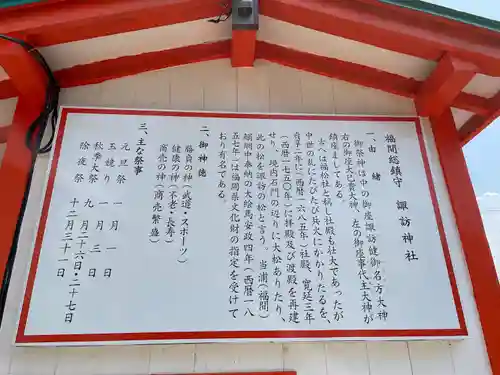 福間総鎮守　諏訪神社
一、由　緒
御祭神は中の御座諏訪健御名方大神
右の御座大己貴大神、左の御座事代主大神が
鎮座ましてある。
古へは福松社と称し社殿も壮大であったが
中世の乱にたびたび兵火にかかりたるを、
貞享二年に(西暦一六八五年)社殿、寛延三年
(西暦一七五〇年)に拝殿及び渡殿を再建
せり、境内石門の辺りに大松ありたり、
此の松を諏訪の松と言う。当浦(福間)
網中奉納の大絵馬安政四年(西暦一八
五七年)は福岡県文化財の指定を受けて
おり有名である。
二、御神徳
勝負の神(武道・スポーツ)
健康の神(不老・長寿)
商売の神(商売繁盛)
三、主な祭事
元旦祭　一月　一日
玉競り　一月　三日
秋季大祭　九月二十六日・二十七日
除夜祭　十二月三十一日